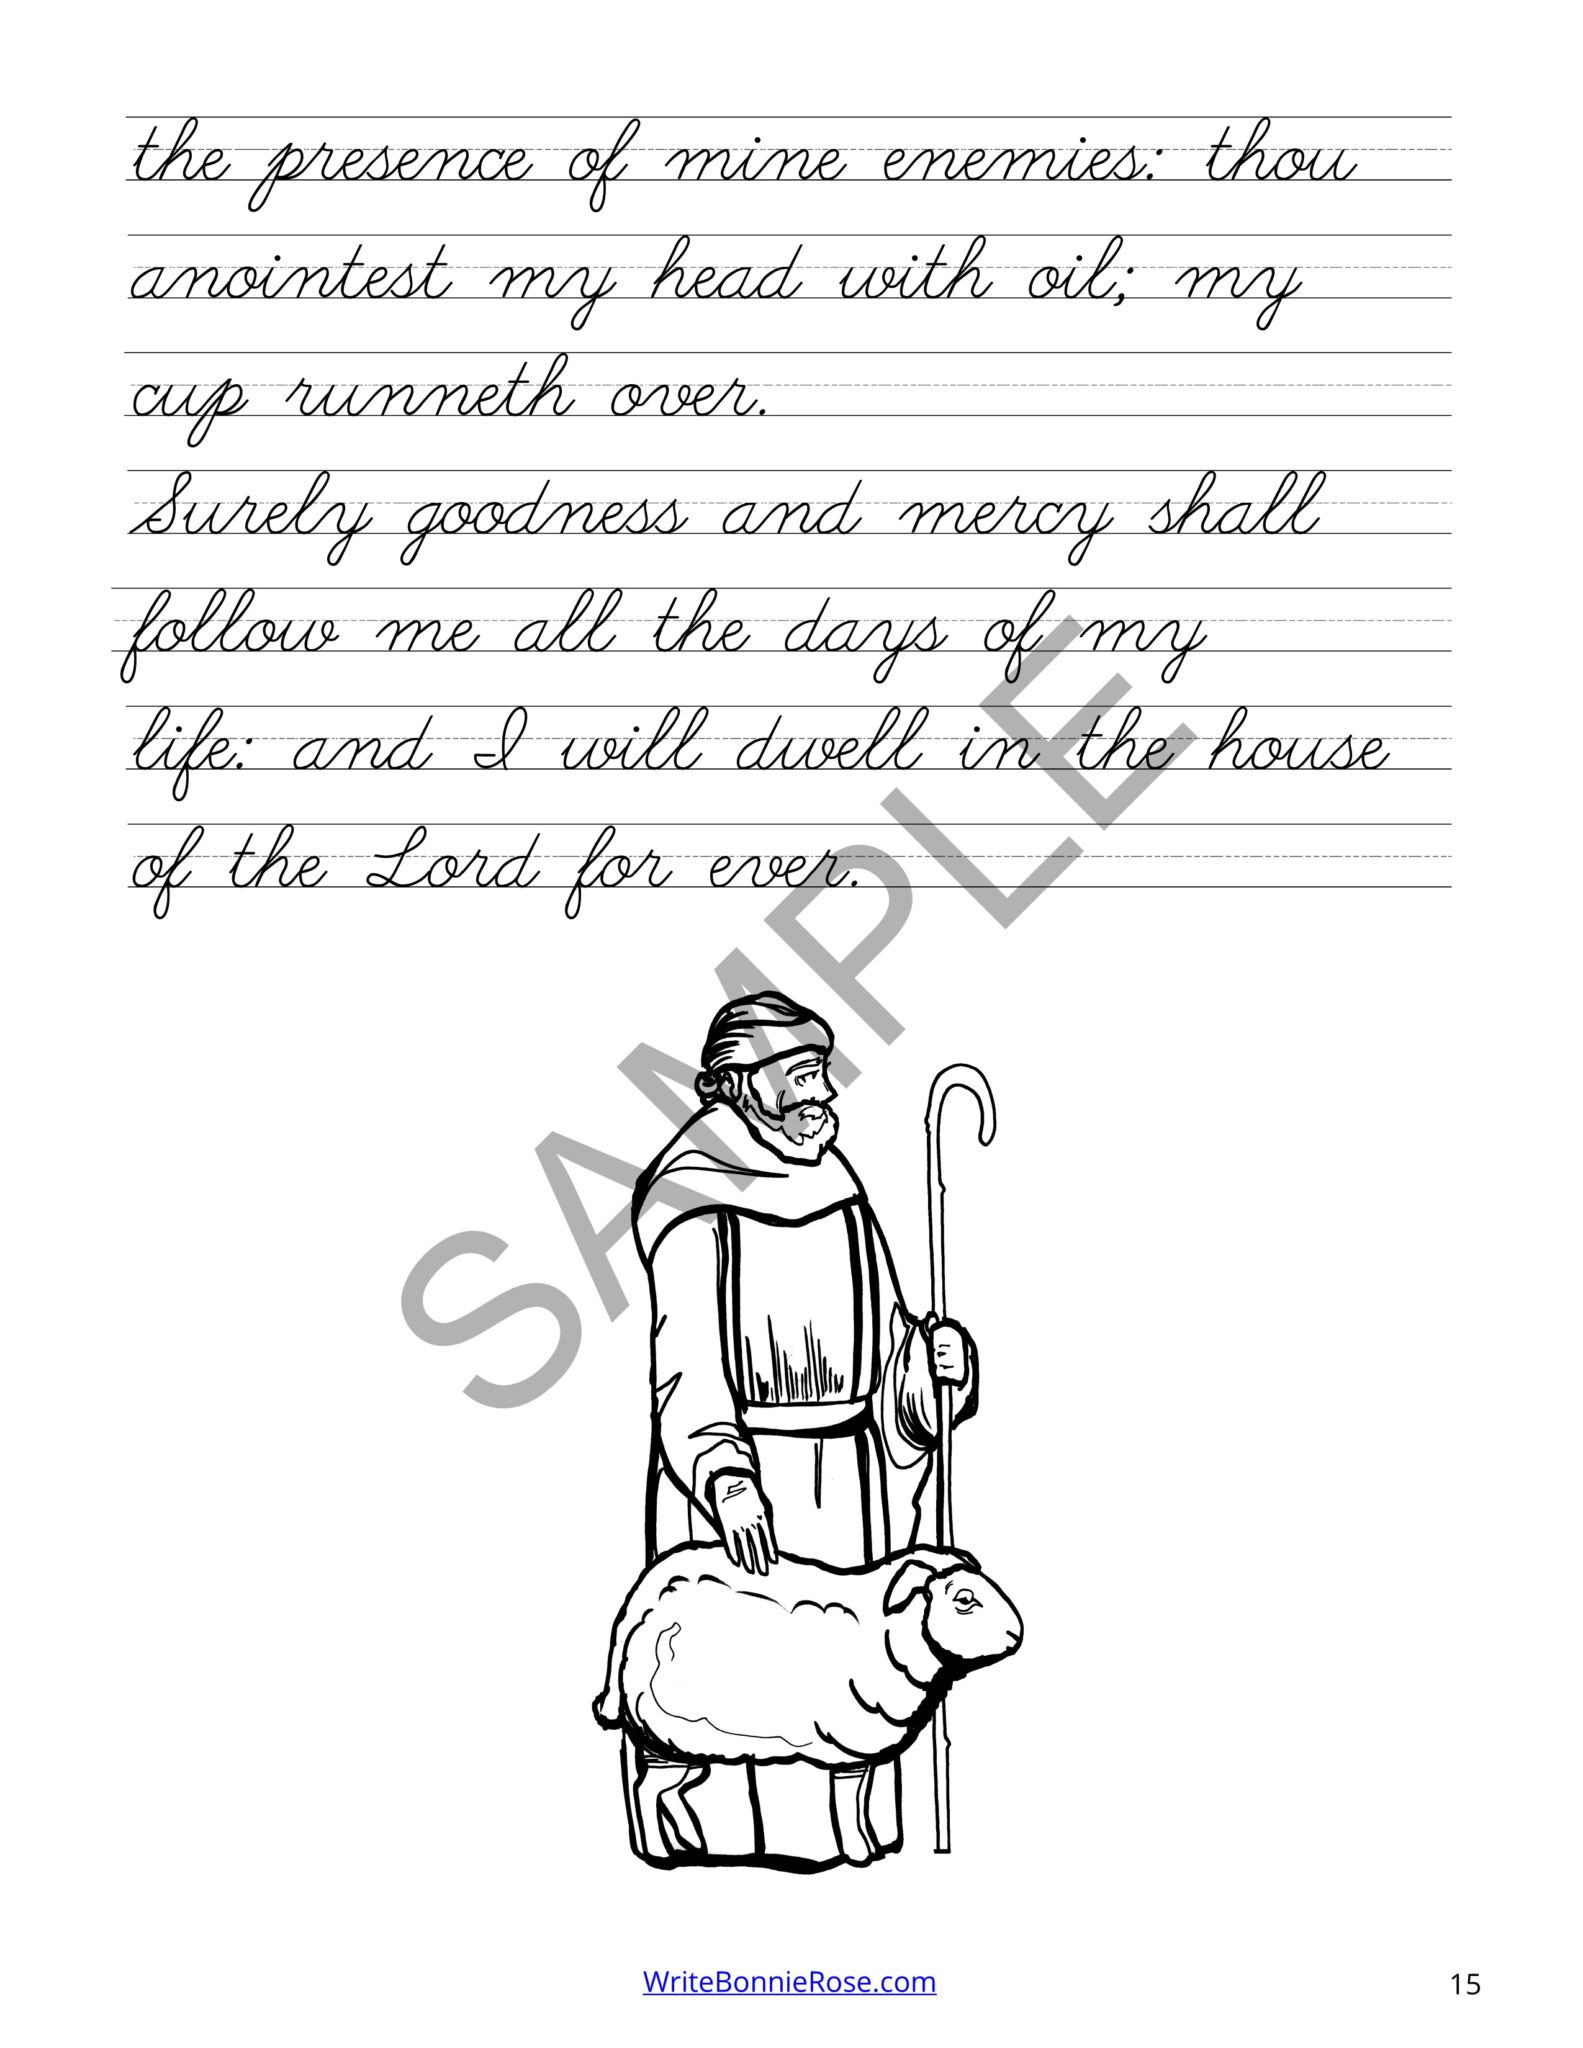 the presence of mine enemies: thou
anointest my head with oil; my
cup runneth over.
Surely goodness and mercy shall
follow me all the days of my
life: and I will dwell in the house
of the Lord for ever.
SAMPLE
WriteBonnieRose.com
15